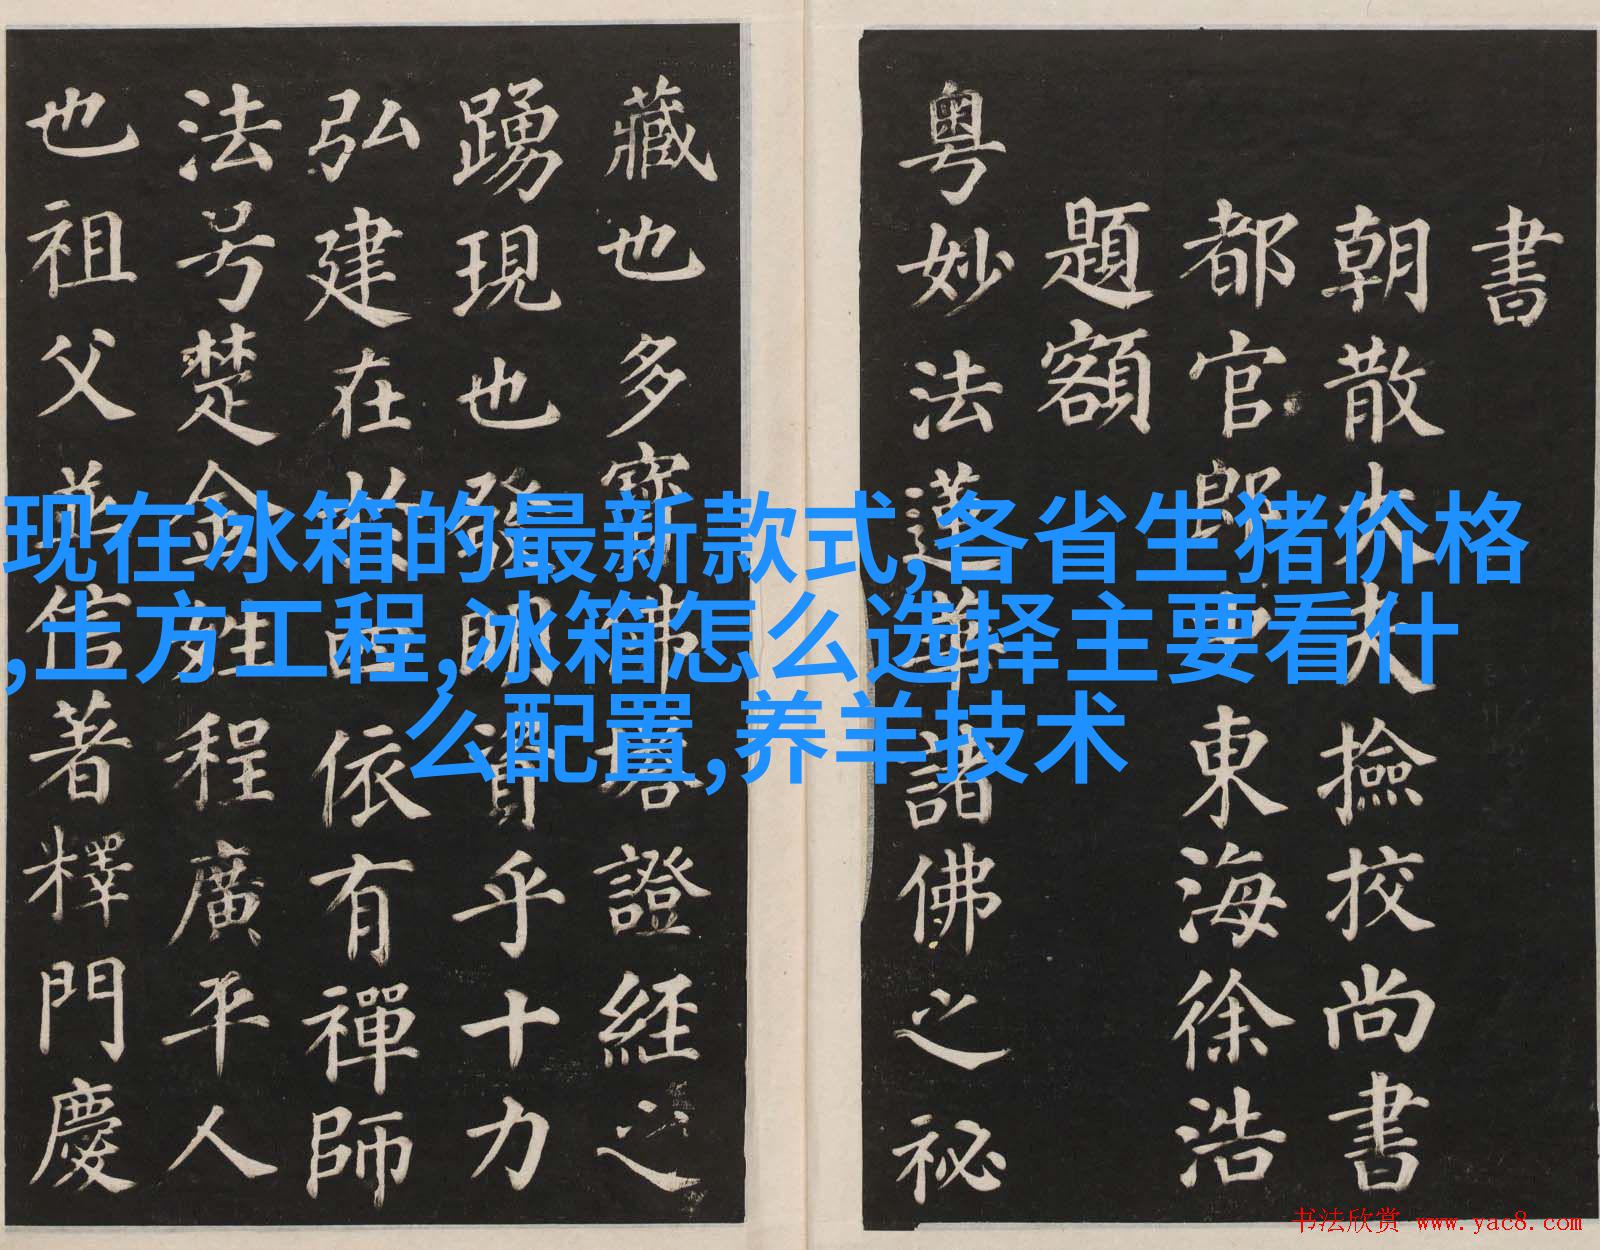 書
朝散大夫撿校尚書
都官郎東海徐浩
題額
粤妙法蓮華諸佛之秘
藏也多寶佛塔證經之
踴現也發明資乎十力
弘建在於依有禪師
法号楚金姓程廣平人
也祖父並信著釋門慶
现在冰箱的最新款式,各省生猪价格
,土方工程,冰箱怎么选择主要看什
么配置,养羊技术
书法欣赏 www.yac8.com